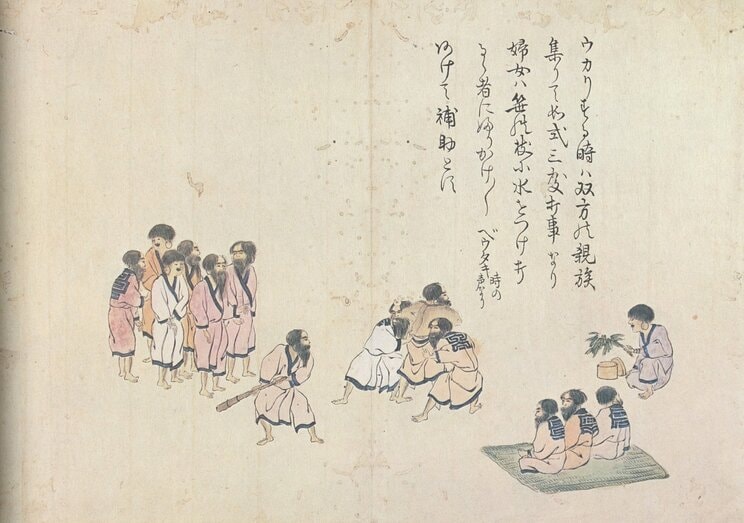 ウカリする時ハ双方の親族
集りて式三度打事なり
婦女ハ笹の枝に水をつけ打
るゝ者にふりかけ〳〵ベウタキ 時の声なり
かけて補助とす